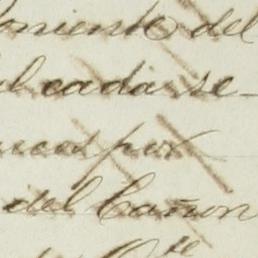 oniente del
l cada se-
ucas por
del Cañon